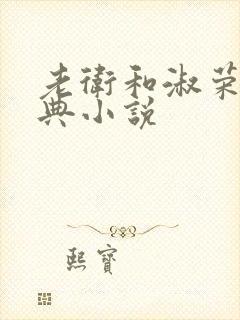 老衛和淑荣
典小說
熙寶